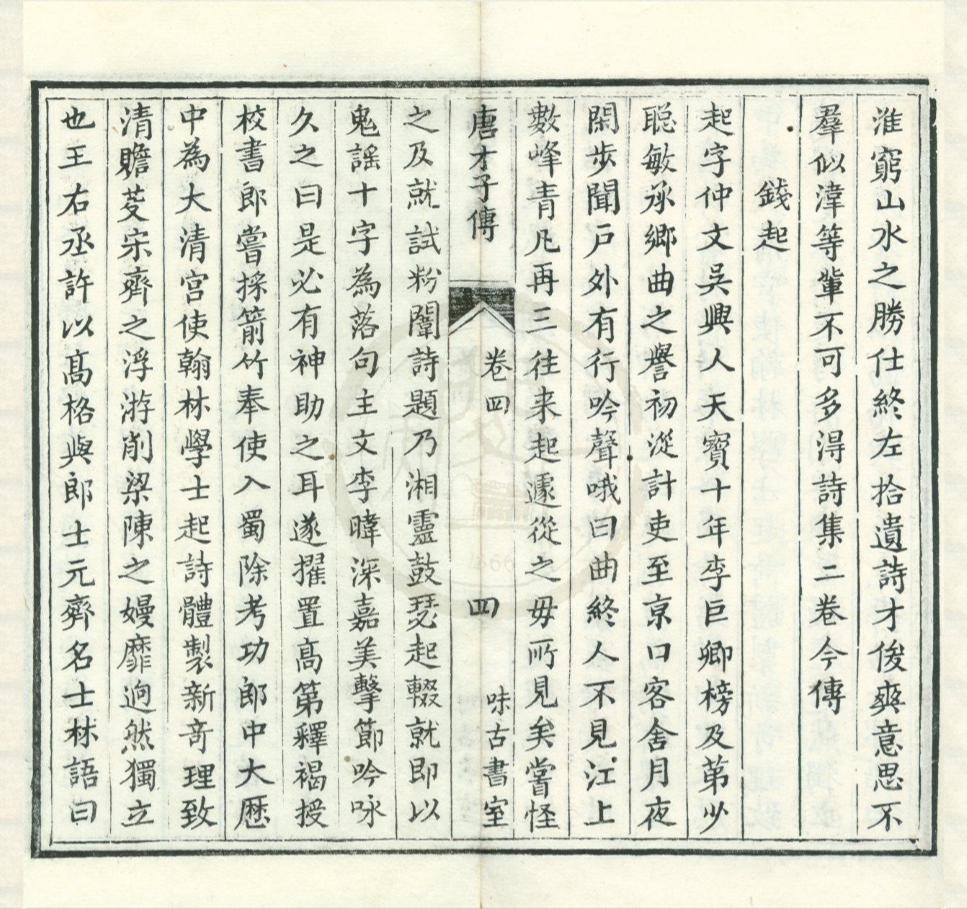 淮窮山水之勝仕終左拾遺詩才俊爽意思不
羣似湋等輩不可多淂詩集二卷今傳
錢起
起字仲文吳興人天寶十年李巨卿榜及第少
聡敏承鄉曲之譽初從計吏至京口客舍月夜
閑步聞戸外有行吟聲哦曰曲終人不見江上
數峰青凡再三往来起遽從之毋所見矣嘗怪
唐才子傳 卷四 四 味古書室
之及就試粉闈詩題乃湘靈鼓瑟起輟就即以
鬼謡十字為落句主文李暐深嘉美擊節吟咏
久之曰是必有神助之耳遂擢置髙第釋褐授
校書郎嘗採箭竹奉使入蜀除考功郎中大厯
中為大清宫使翰林學士起詩體製新竒理致
清贍芟宋齊之浮游削梁陳之嫚靡逈然獨立
也王右丞許以髙格與郎士元齊名士林語曰